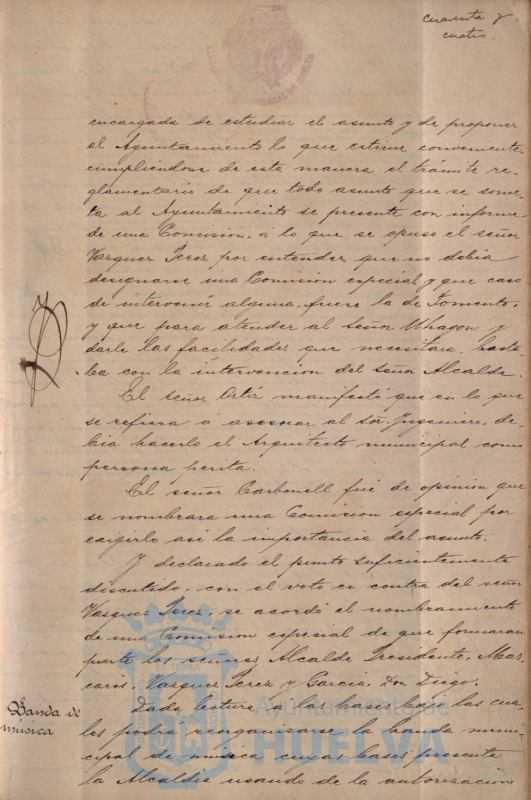 cuarenta y
cuatro.
encargada de estudiar el asunto y de proponer
al Ayuntamiento lo que estime conveniente,
cumpliéndose de esta manera el trámite re-
glamentario de que todo asunto que se some-
ta al Ayuntamiento se presente con informe
de una Comisión, a lo que se opuso el señor
Vazquez Perez por entender que no debia
designarse una Comisión especial y que caso
de intervenir alguna, fuese la de Fomento,
y que para atender al Señor Whagon y
darle las facilidades que necesitara, basta-
ba con la intervención del Señor Alcalde.
El señor Ortiz manifestó que en lo que
se refiera a asesorar al Ingeniero, de-
bia hacerlo el Arquitecto municipal como
persona perita.
El señor Carbonell fué de opinión que
se nombrara una Comision especial por
exigirlo asi la importancia del asunto.
Y declarado el punto suficientemente
discutido, con el voto en contra del señor
Vazquez Perez, se acordó el nombramiento
de una Comision especial de que formaran
parte los señores Alcalde Presidente, Mas-
caros, Vazquez Perez y Garcia, Don Diego.
Banda de
música
Dada lectura a las bases bajo las cua-
les podrá reorganizarse la banda muni-
cipal de música cuyas bases presenta
la Alcaldia usando de la autorización
Ayuntamiento de
HUELVA